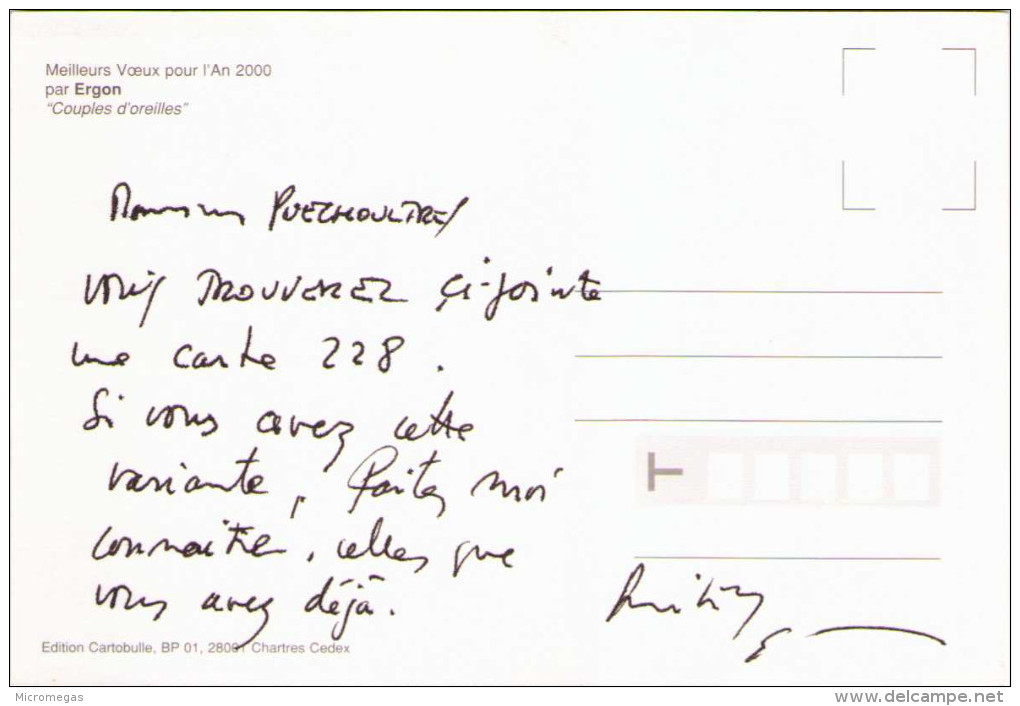 Meilleurs Vœux pour l'An 2000
par Ergon
"Couples d'oreilles"
Monsieur
vous TROUVEREZ ci-jointe
une carte 228.
Si vous avez cette
variante, faites moi
connaitre, celles que
vous avez déjà.
Edition Cartobulle, BP 01, 28001 Chartres Cedex
Micromegas
www.delcampe.net